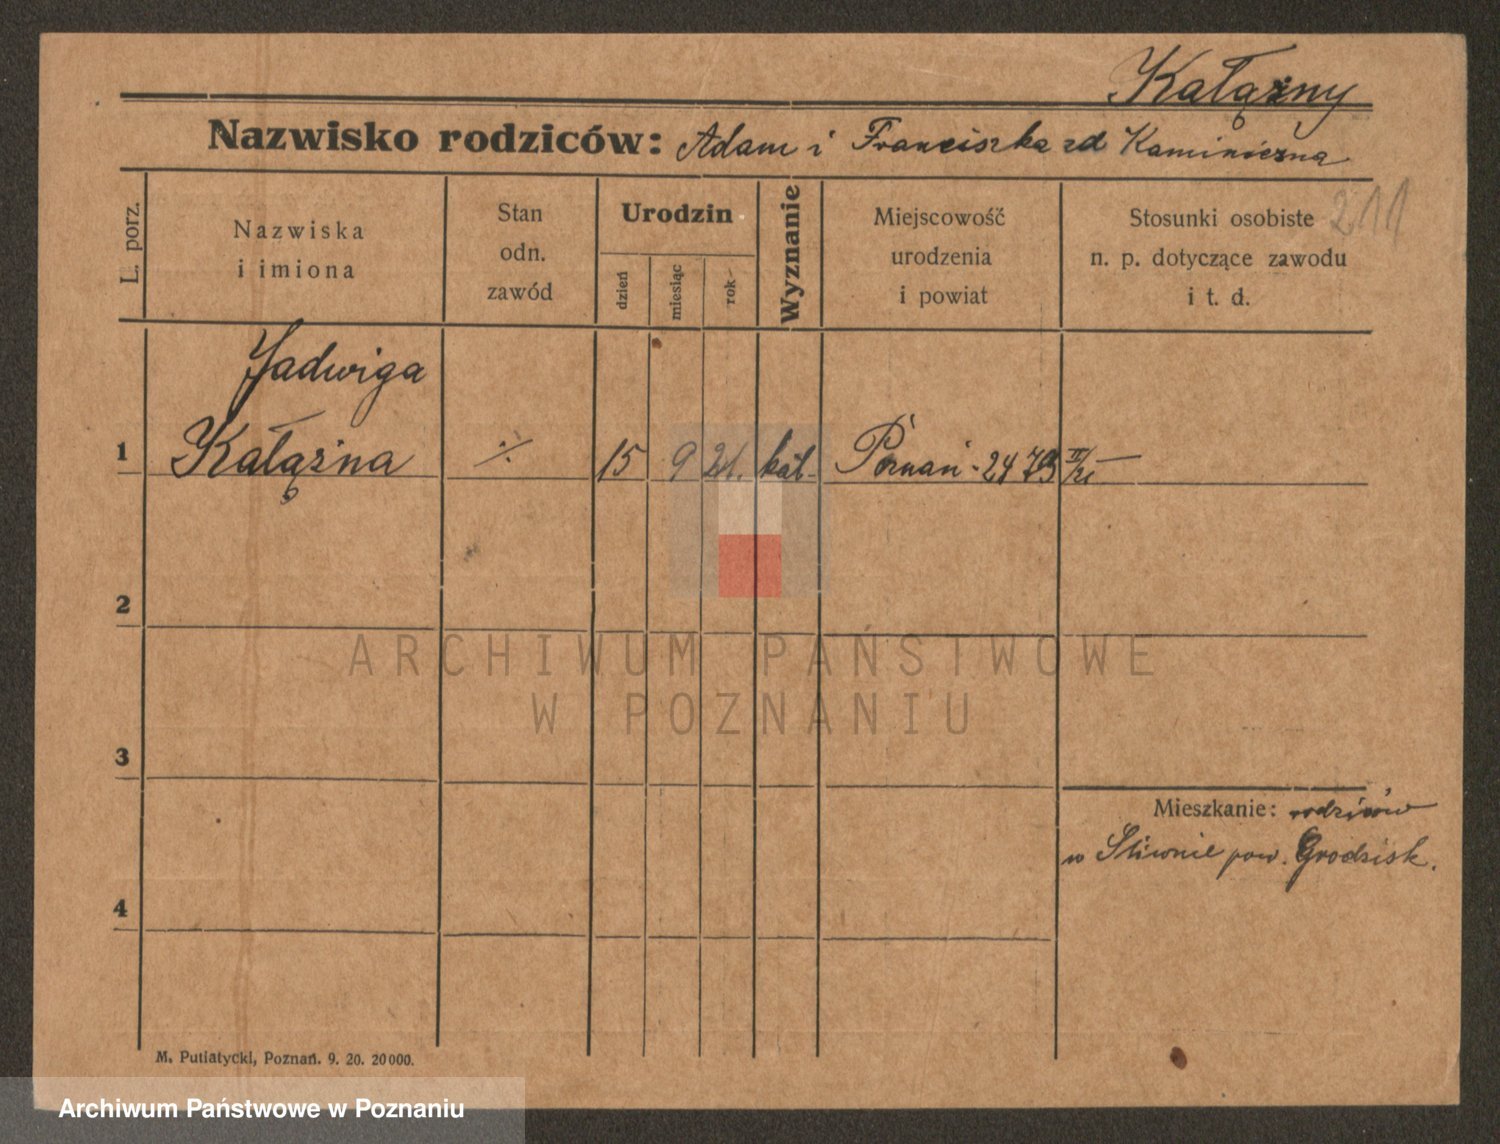 Kałążny
Nazwisko rodziców: Adam i Franciszka zd Kaminiczna
211
L. porz.
Nazwiska
i imiona
Stan
odn.
zawód
Urodzin
dzień
miesiąc
rok
Wyznanie
Miejscowość
urodzenia
i powiat
Stosunki osobiste
n. p. dotyczące zawodu
i t. d.
Jadwiga
1 Kałążna ·/· 15 9 21. kat. Poznań - 2473 II/21
2
3
4
Mieszkanie: rodziców
w Śliwnie pow. Grodzisk.
M. Putiatycki, Poznań. 9. 20. 20000.
ARCHIWUM PAŃSTWOWE
W POZNANIU
Archiwum Państwowe w Poznaniu